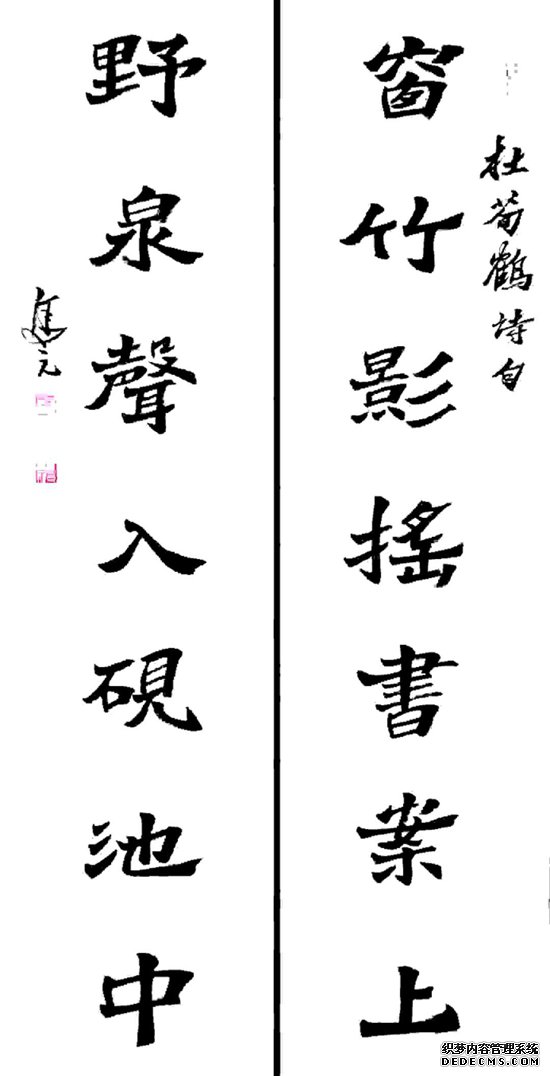 杜荀鶴詩句
窗竹影搖書案上
野泉聲入硯池中
元
织梦内容管理系统
DEDECMS.COM